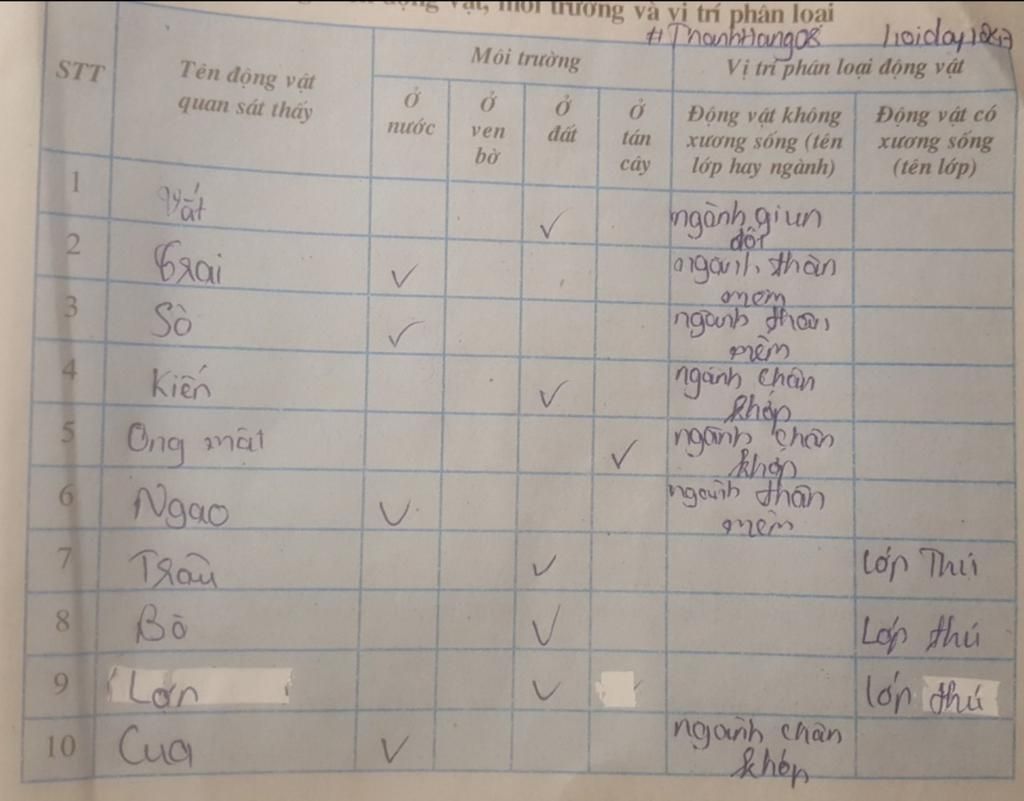 động vật, môi trường và vị trí phân loại
#ThanhHang08
STT
Tên động vật
quan sát thấy
Môi trường
Vị trí phân loại động vật
Ở
nước
Ở
ven
bờ
Ở
đất
Ở
tán
cây
Động vật không
xương sống (tên
lớp hay ngành)
Động vật có
xương sống
(tên lớp)
1
vắt
ngành giun
đốt
2
trai
ngành thân
mềm
3
Sò
ngành thân
mềm
4
kiến
ngành chân
khớp
5
Ong mật
ngành chân
khớp
6
Ngao
ngành thân
mềm
7
Trâu
lớp Thú
8
Bò
Lớp thú
9
Lợn
lớp thú
10
Cua
ngành chân
khớp